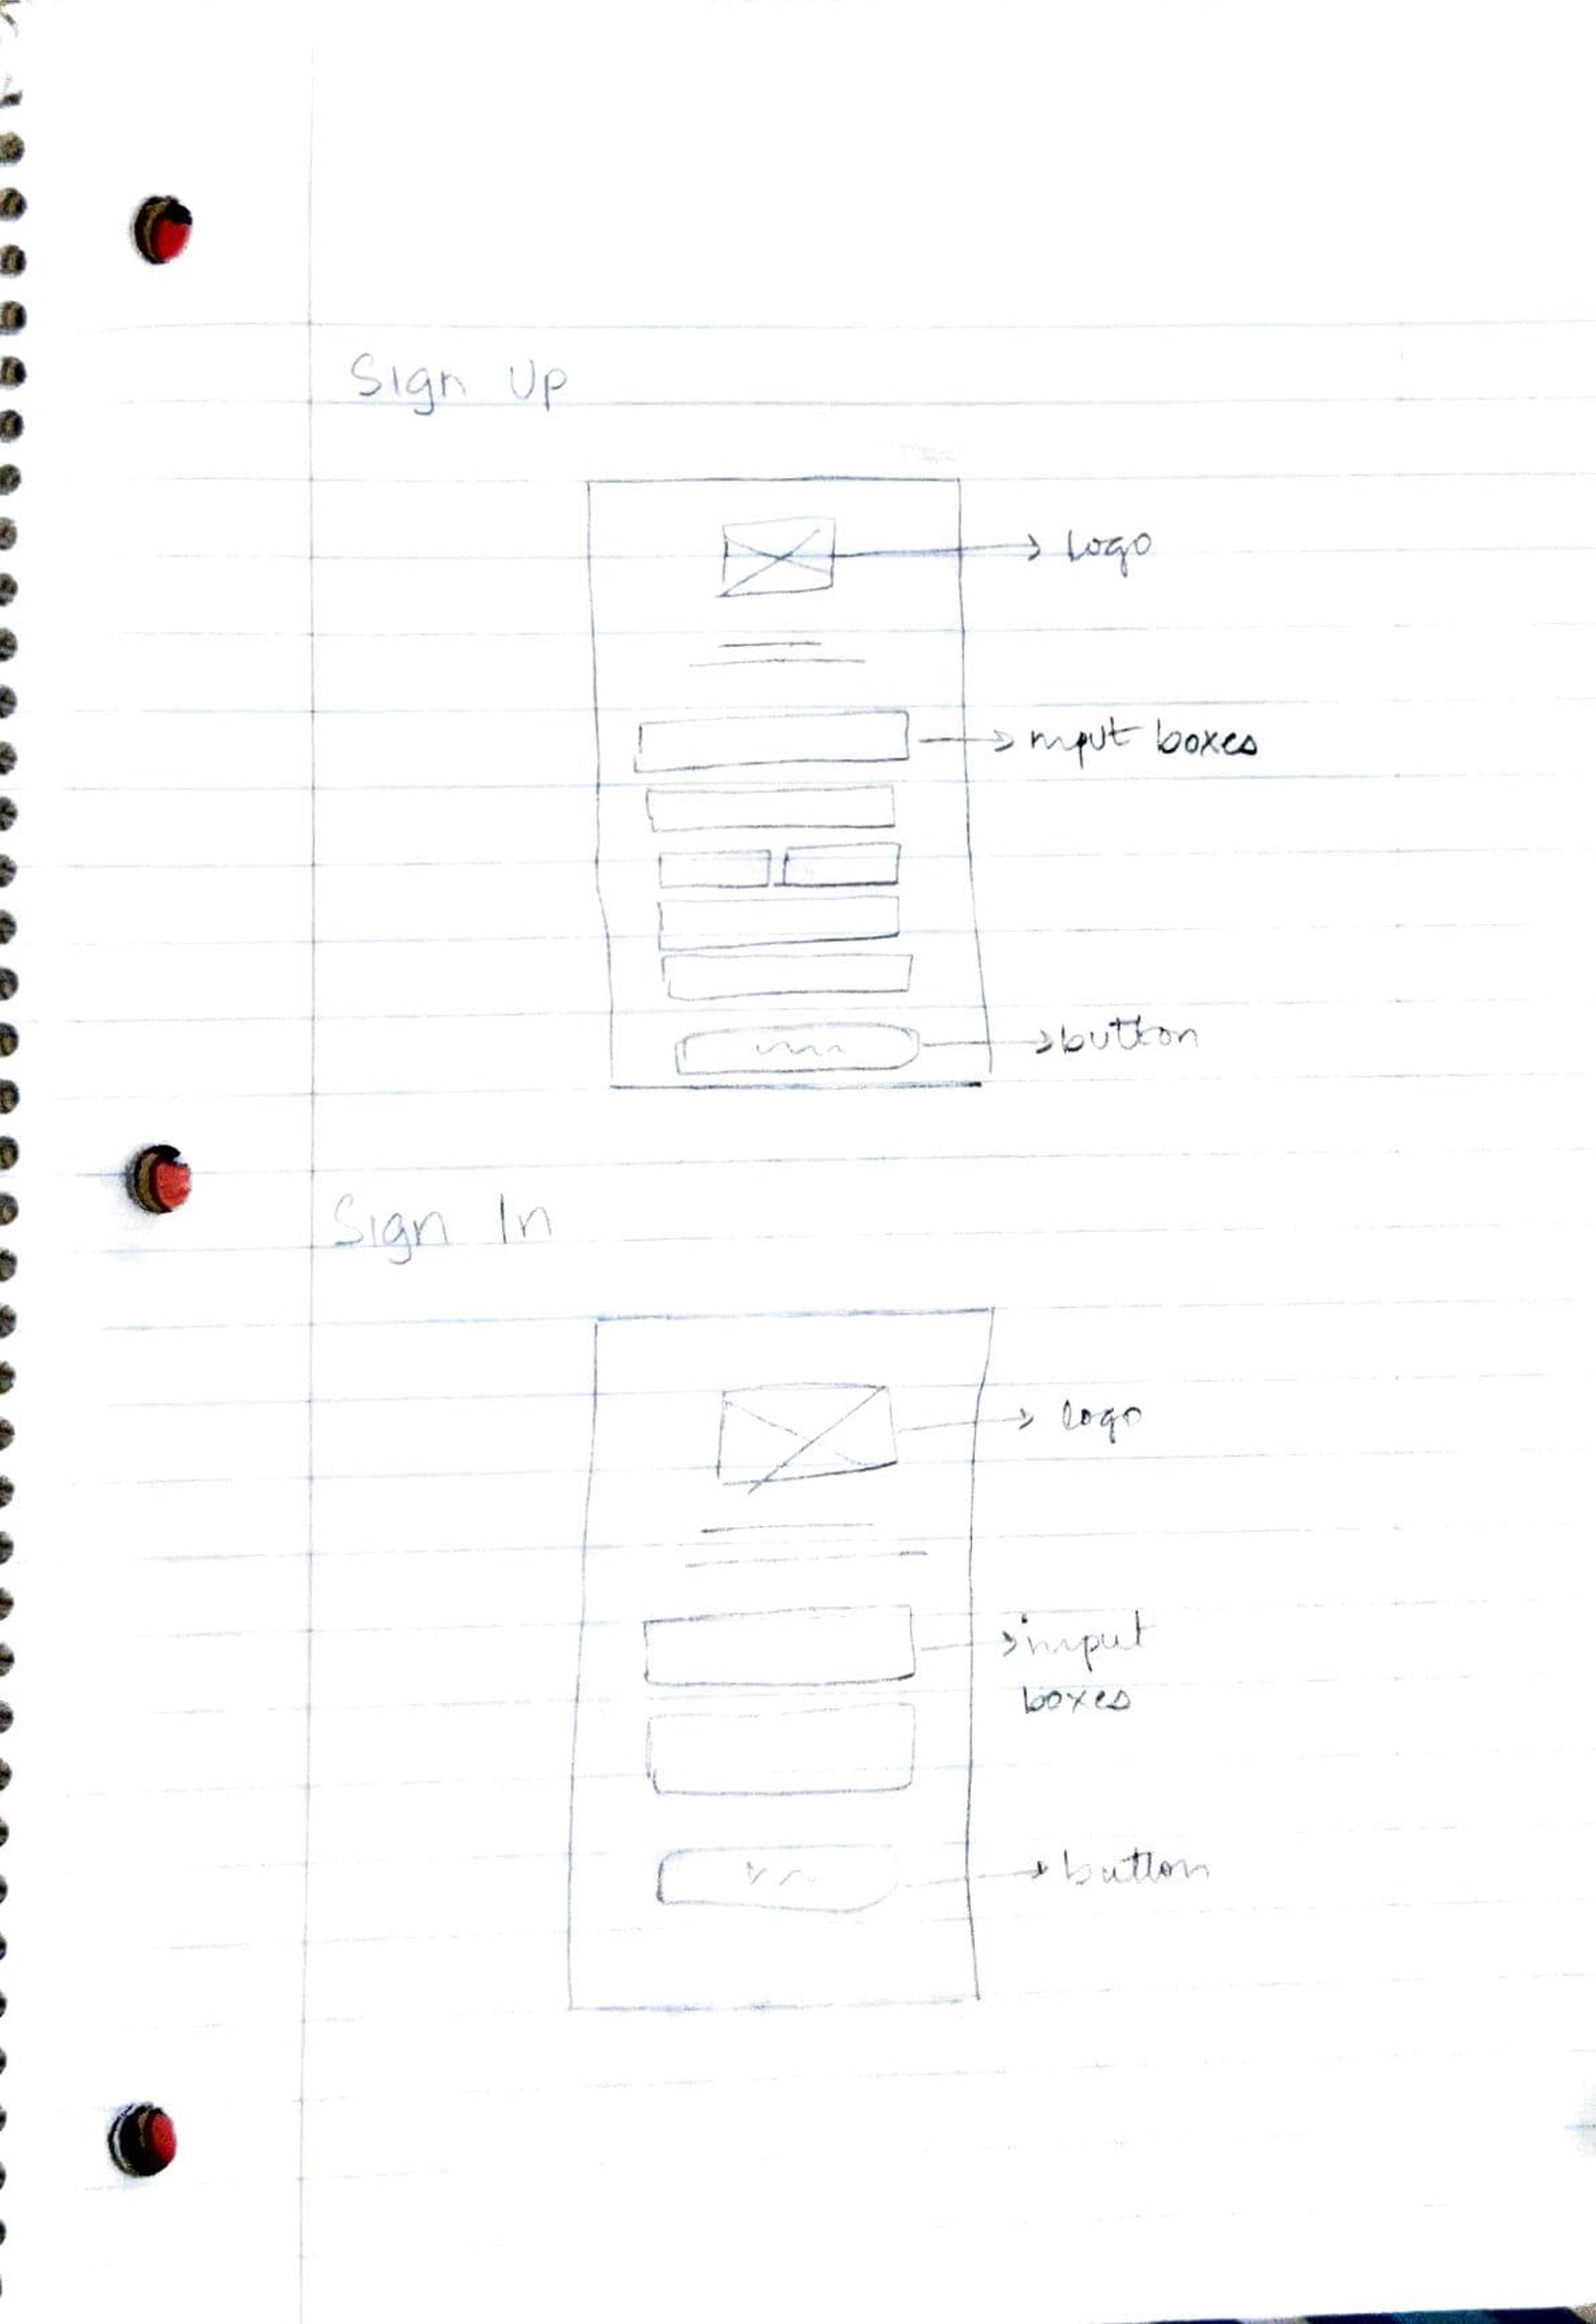 Sign Up
Logo
input boxes
button
Sign In
logo
input
boxes
button